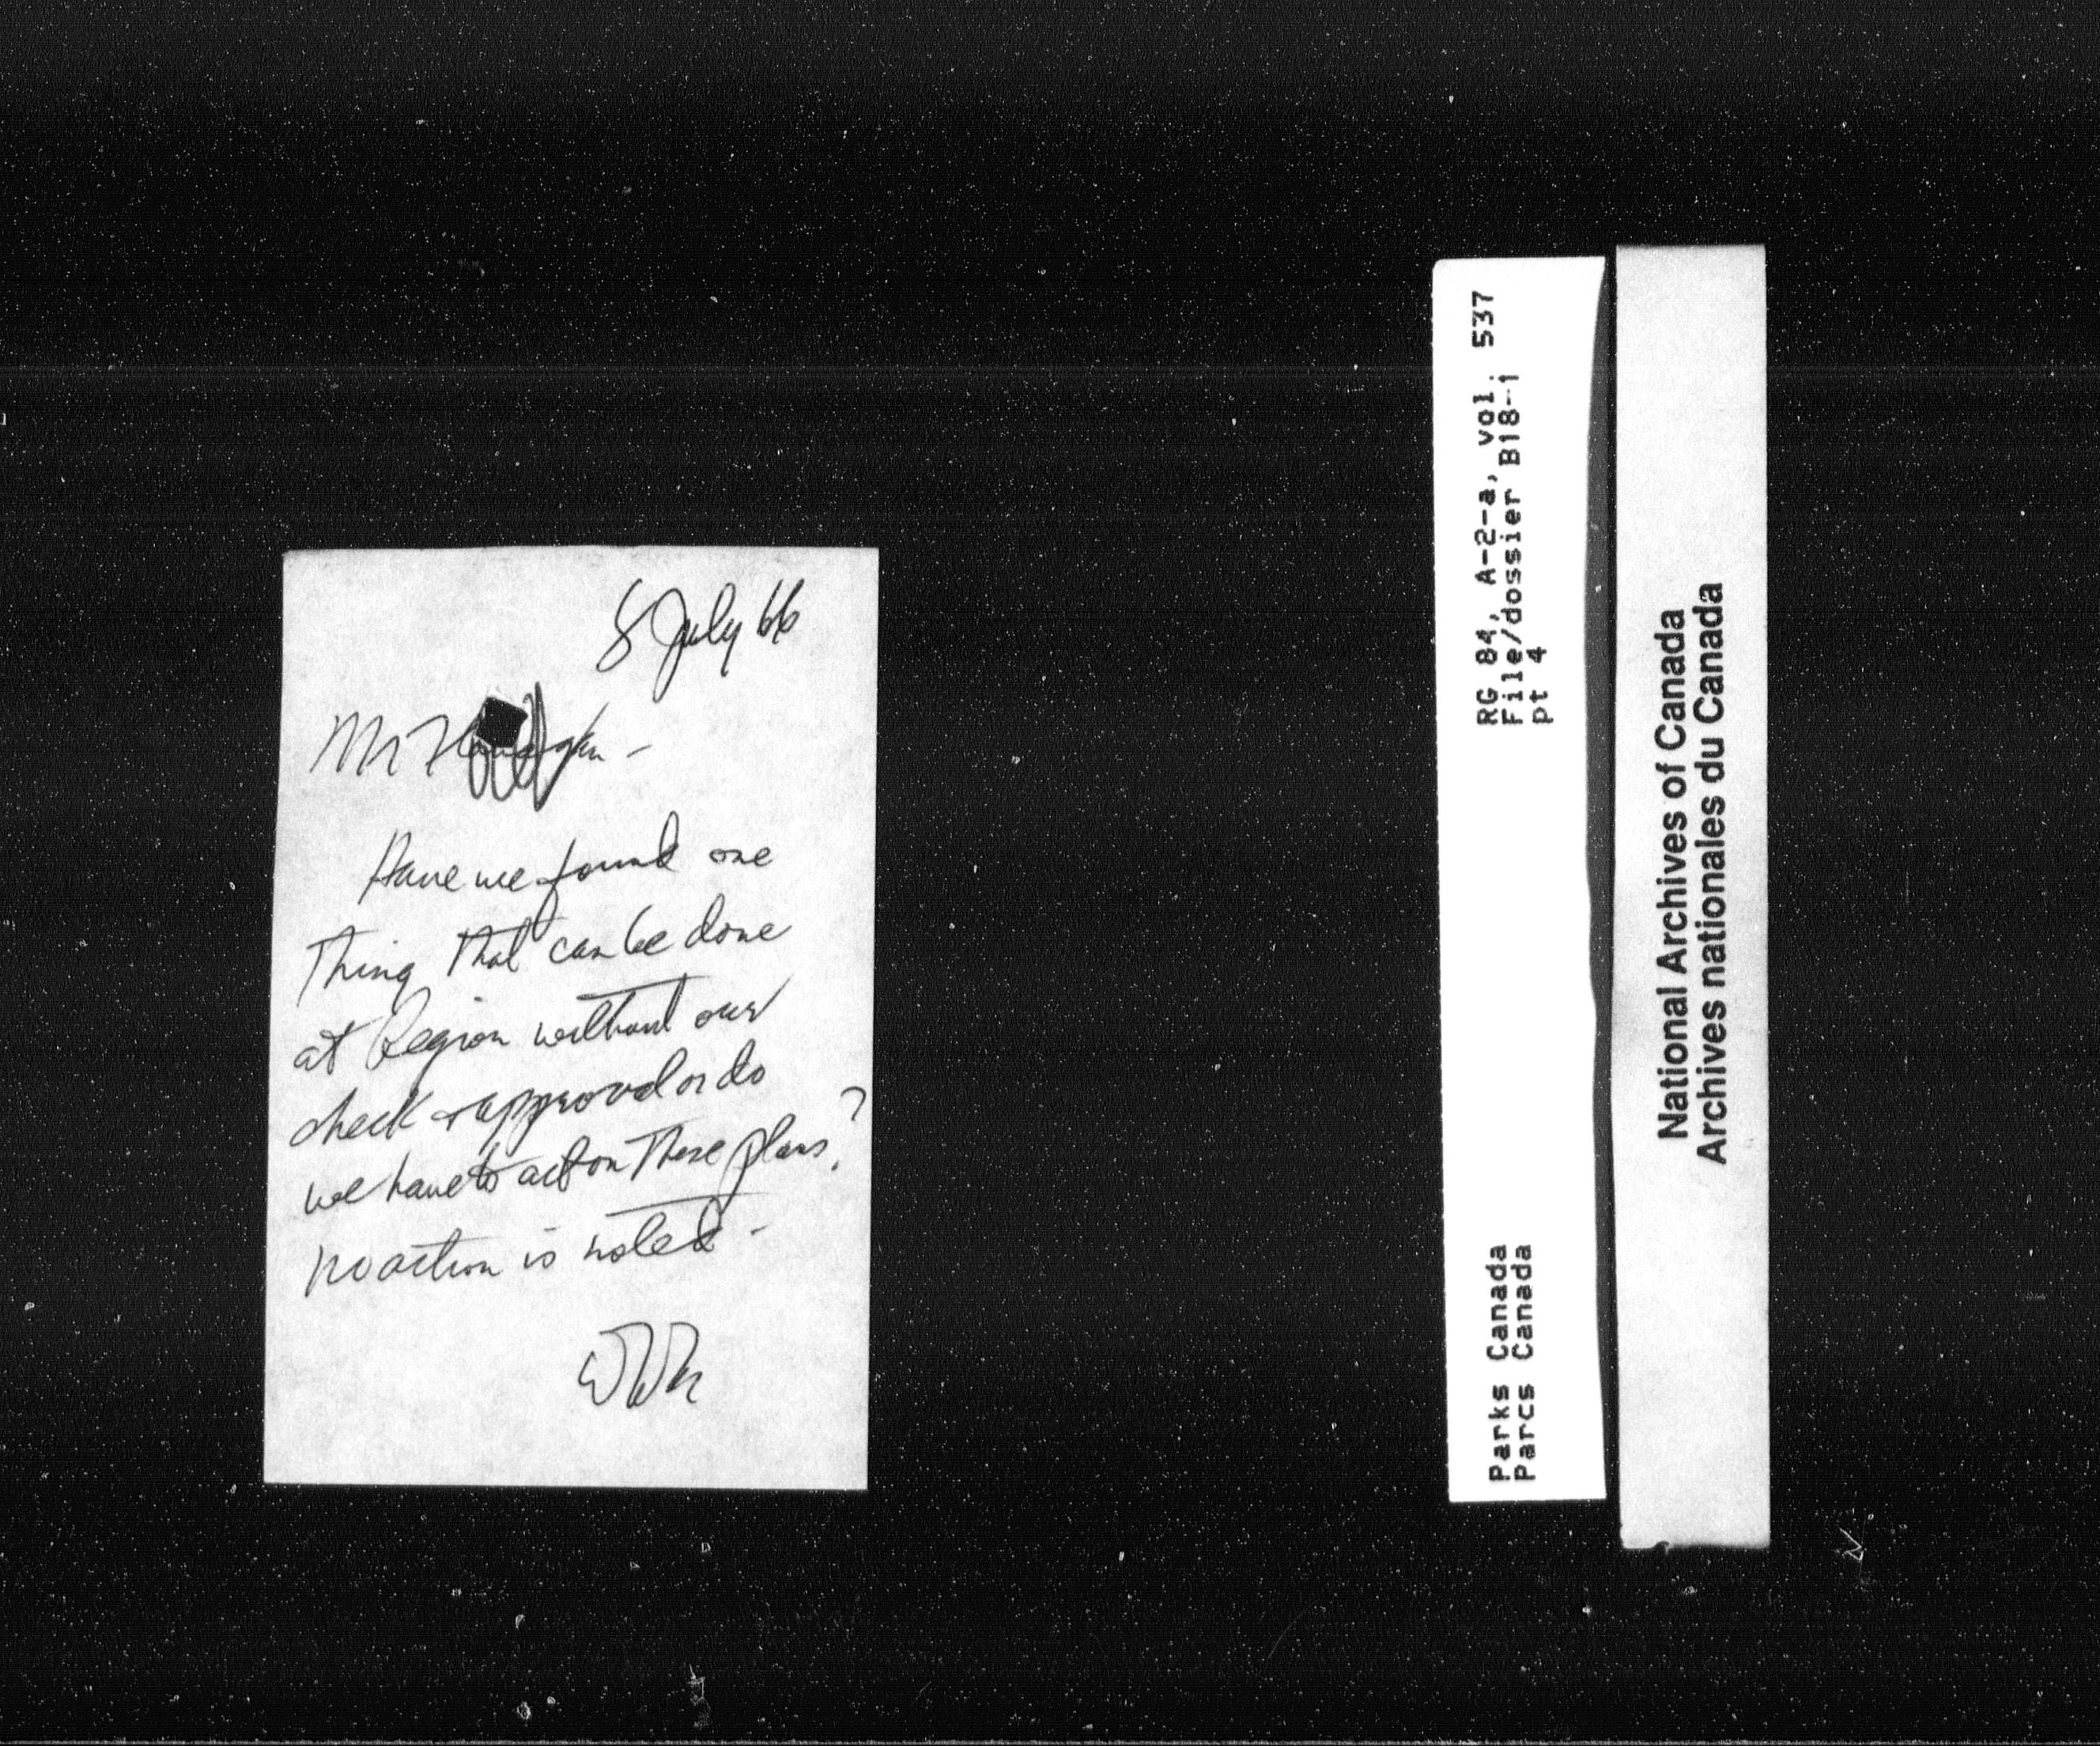 8 July 66
Mr
Have we found one
thing that can be done
at Region without our
check + approval or do
we have to act on these plans?
No action is noted -
RG 84, A-2-a, vol. 537
File/dossier B18-1
pt 4
Parks Canada
Parcs Canada
National Archives of Canada
Archives nationales du Canada